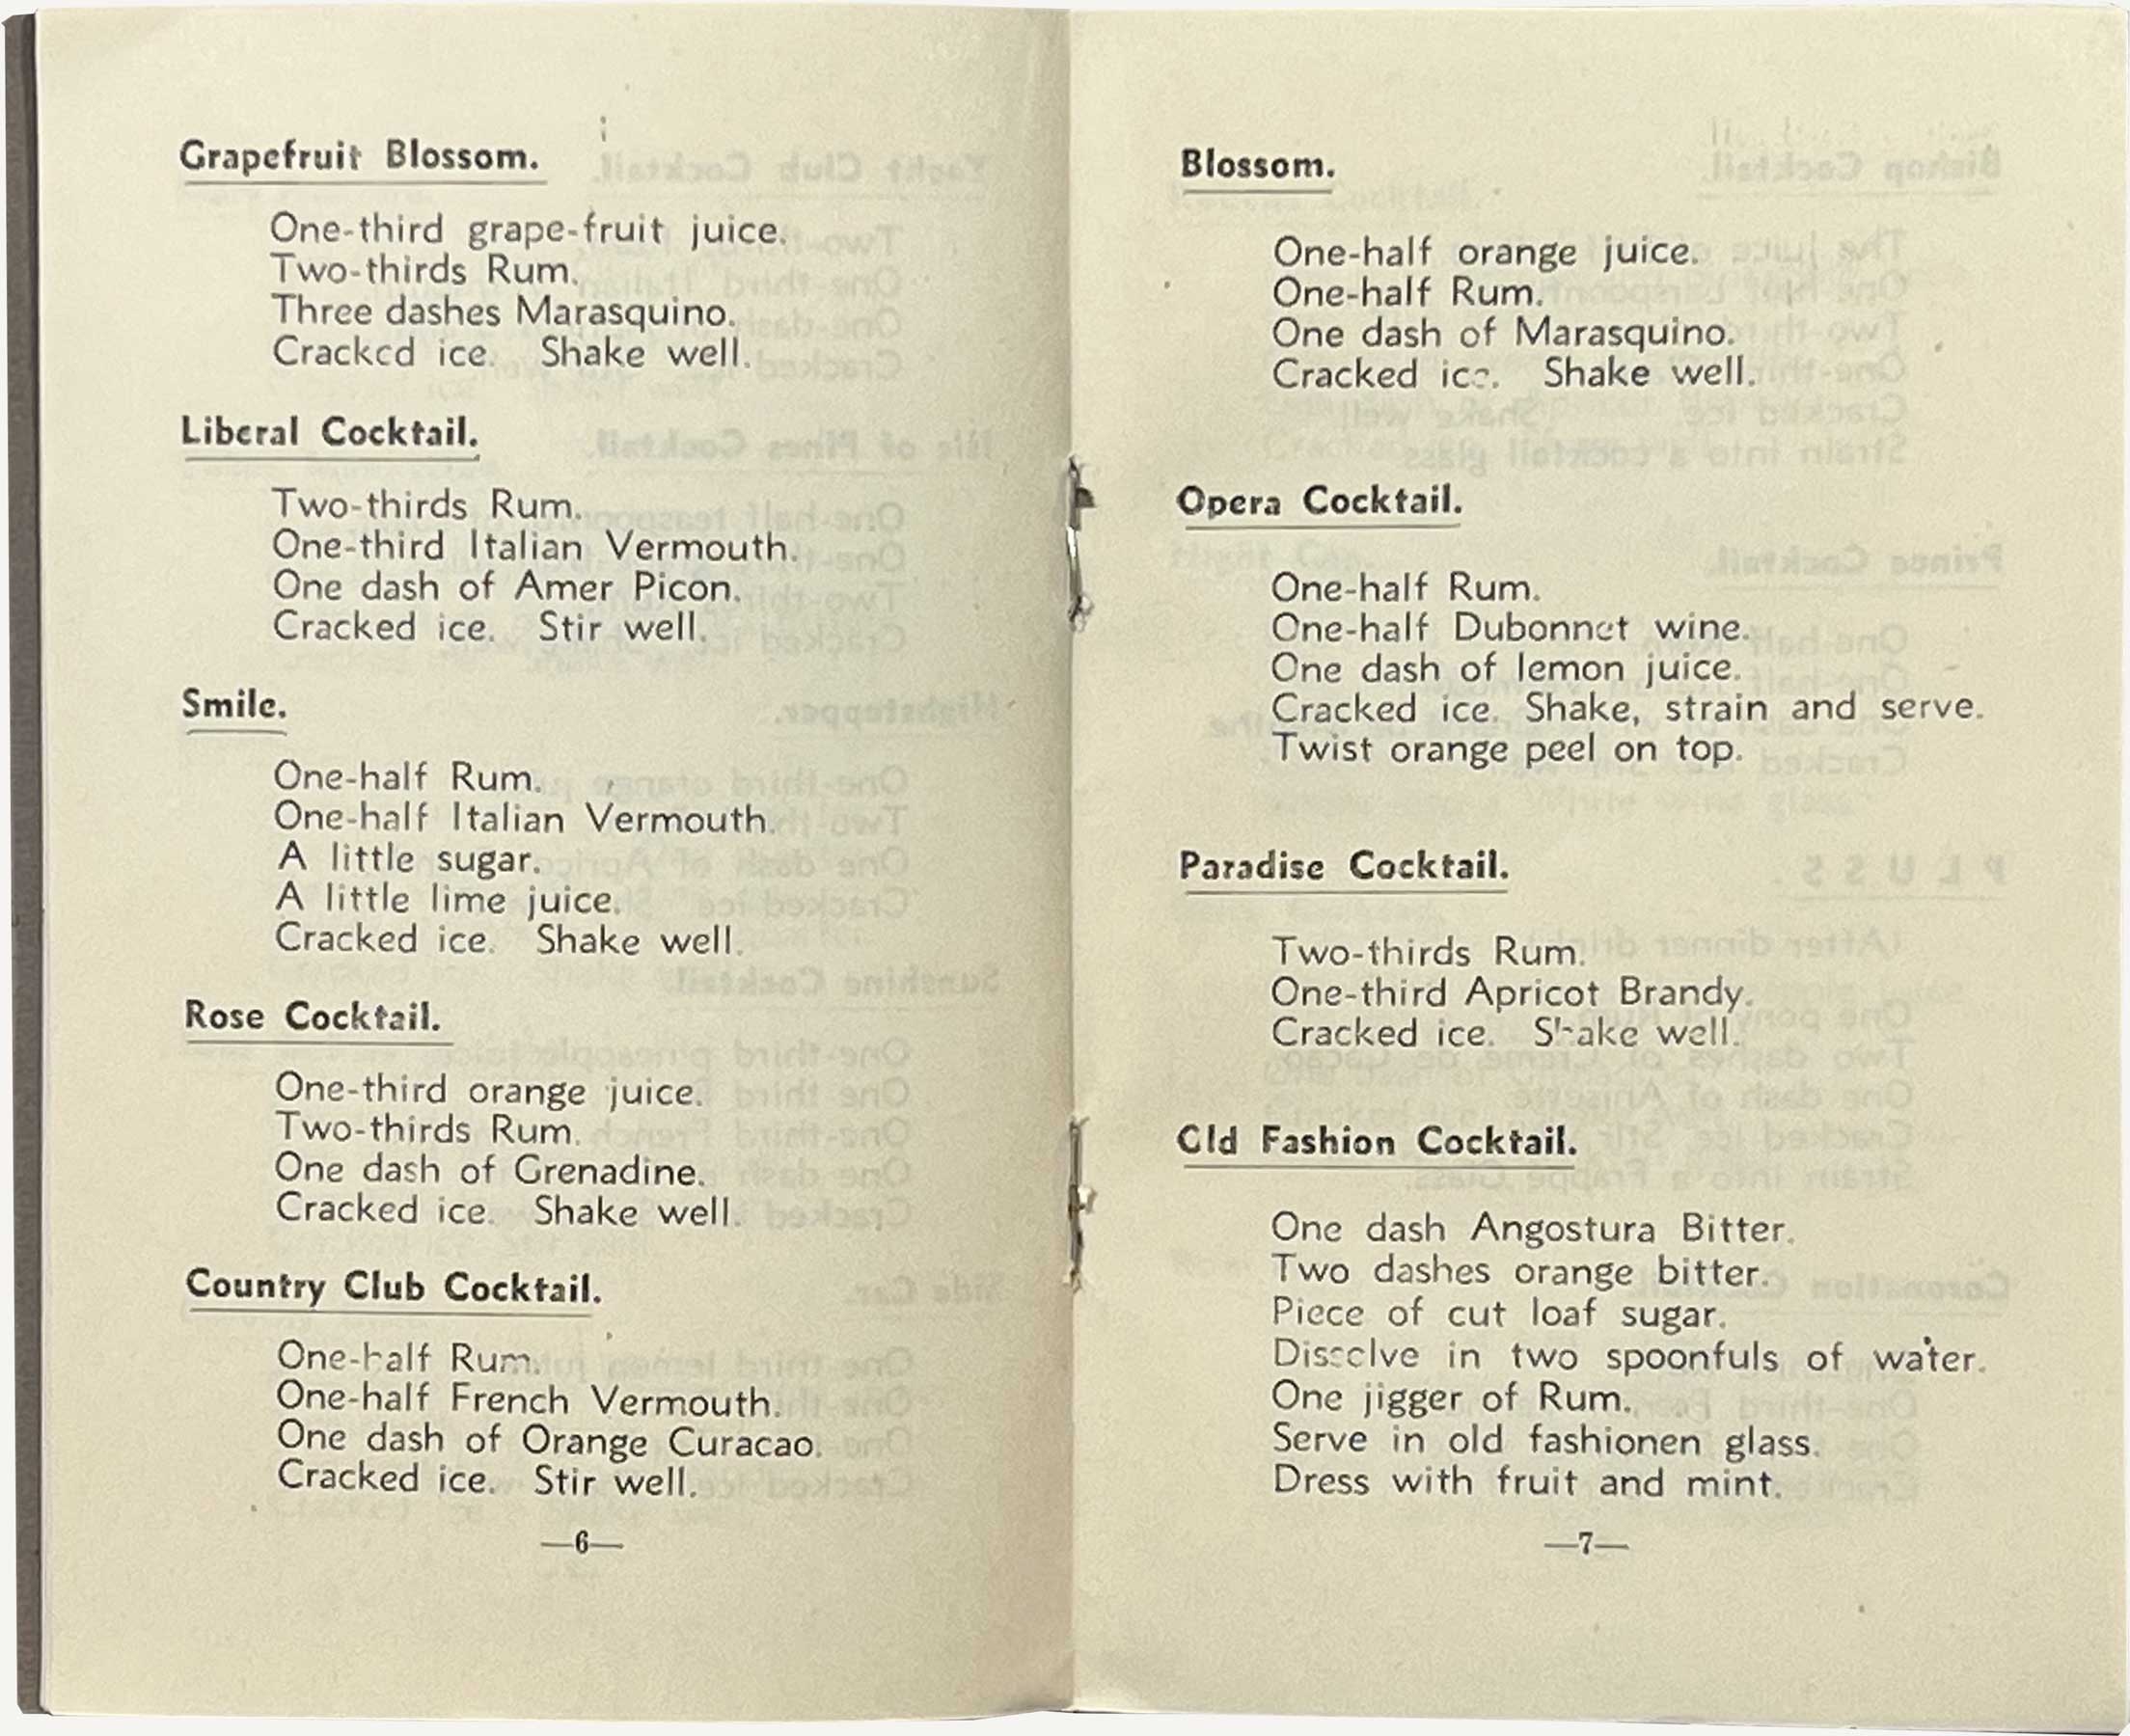 Grapefruit Blossom.
One-third grape-fruit juice.
Two-thirds Rum.
Three dashes Marasquino.
Cracked ice. Shake well.
Liberal Cocktail.
Two-thirds Rum.
One-third Italian Vermouth.
One dash of Amer Picon.
Cracked ice. Stir well.
Smile.
One-half Rum.
One-half Italian Vermouth.
A little sugar.
A little lime juice.
Cracked ice. Shake well.
Rose Cocktail.
One-third orange juice.
Two-thirds Rum.
One dash of Grenadine.
Cracked ice. Shake well.
Country Club Cocktail.
One-half Rum.
One-half French Vermouth.
One dash of Orange Curacao.
Cracked ice. Stir well.
—6—
Blossom.
One-half orange juice.
One-half Rum.
One dash of Marasquino.
Cracked ice. Shake well.
Opera Cocktail.
One-half Rum.
One-half Dubonnet wine.
One dash of lemon juice.
Cracked ice. Shake, strain and serve.
Twist orange peel on top.
Paradise Cocktail.
Two-thirds Rum.
One-third Apricot Brandy.
Cracked ice. Shake well.
Old Fashion Cocktail.
One dash Angostura Bitter.
Two dashes orange bitter.
Piece of cut loaf sugar.
Dissolve in two spoonfuls of water.
One jigger of Rum.
Serve in old fashionen glass.
Dress with fruit and mint.
—7—